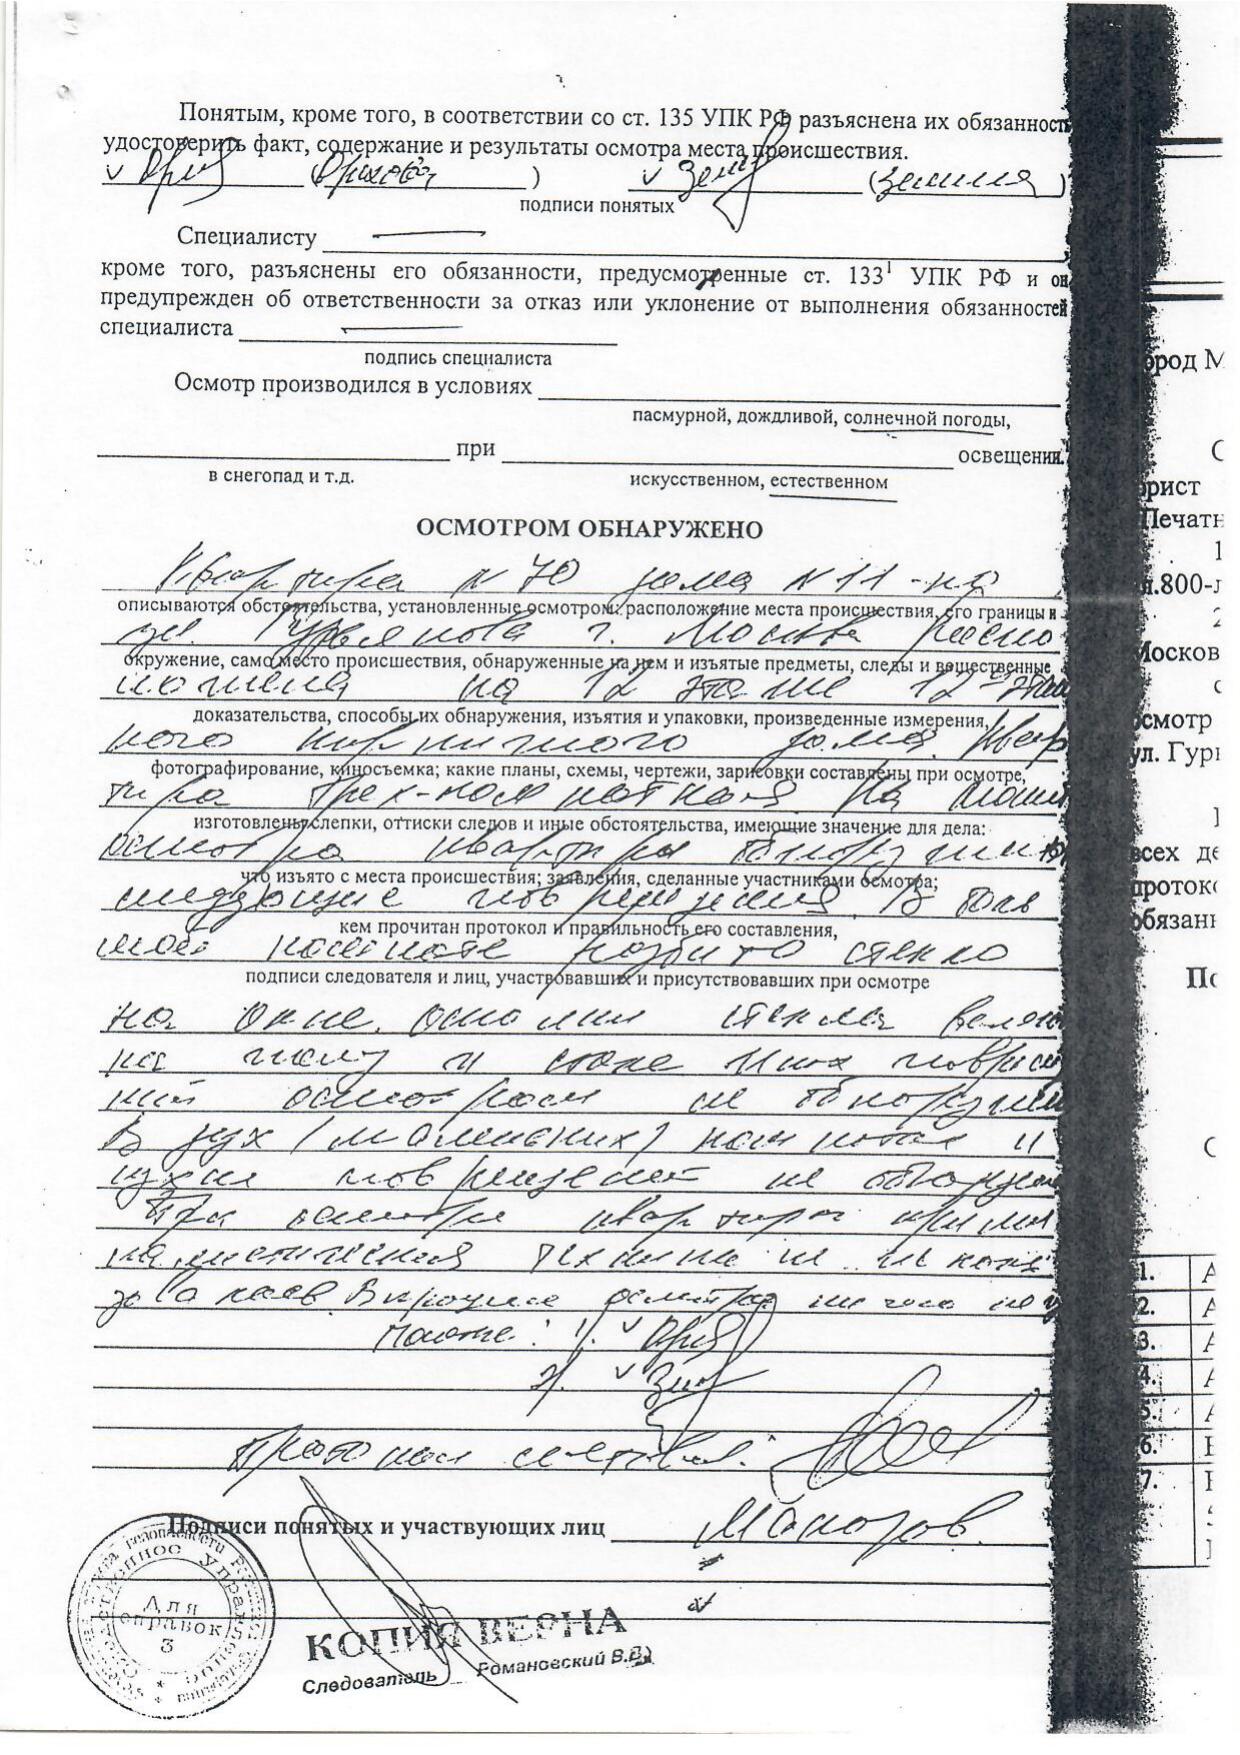 Понятым, кроме того, в соответствии со ст. 135 УПК РФ разъяснена их обязанность
удостоверить факт, содержание и результаты осмотра места происшествия.
( )
подписи понятых
Специалисту
кроме того, разъяснены его обязанности, предусмотренные ст. 133¹ УПК РФ и он
предупрежден об ответственности за отказ или уклонение от выполнения обязанностей
специалиста
подпись специалиста
Осмотр производился в условиях
пасмурной, дождливой, солнечной погоды,
при освещении.
в снегопад и т.д. искусственном, естественном
ОСМОТРОМ ОБНАРУЖЕНО
Квартира N 70 дома N 11 по
описываются обстоятельства, установленные осмотром: расположение места происшествия, его границы и
ул. Гурьянова г. Москва распо
окружение, само место происшествия, обнаруженные на нем и изъятые предметы, следы и вещественные
ложена на 12 этаже 12-этаж
доказательства, способы их обнаружения, изъятия и упаковки, произведенные измерения,
ного кирпичного дома. Квар
фотографирование, киносъемка; какие планы, схемы, чертежи, зарисовки составлены при осмотре,
тира трех-комнатная. На момент
изготовлены слепки, оттиски следов и иные обстоятельства, имеющие значение для дела:
осмотра квартиры обнаружены
что изъято с места происшествия; заявления, сделанные участниками осмотра;
следующие повреждения. В боль
кем прочитан протокол и правильность его составления,
шой комнате разбито стекло
подписи следователя и лиц, участвовавших и присутствовавших при осмотре
на окне. Осколки стекла
на полу и столе. Иных поврежде
ний осмотром не обнаружено
В двух (маленьких) комнатах и
кухне повреждений не обнаружено
При осмотре квартиры крими
налистическая техника не исполь
зовалась. В процессе осмотра ничего не
Понятые: 1.
2.
Протокол составил:
Подписи понятых и участвующих лиц
Следственное Управление
Для
справок
3
КОПИЯ ВЕРНА
Следователь Романовский В.В.
ород М
С
рист
Печатн
1
л.800-л
2
Москов
с
осмотр
ул. Гурь
всех де
протоко
обязанн
По
С
1. А
2. А
3. А
4. А
5. А
6. В
7. В